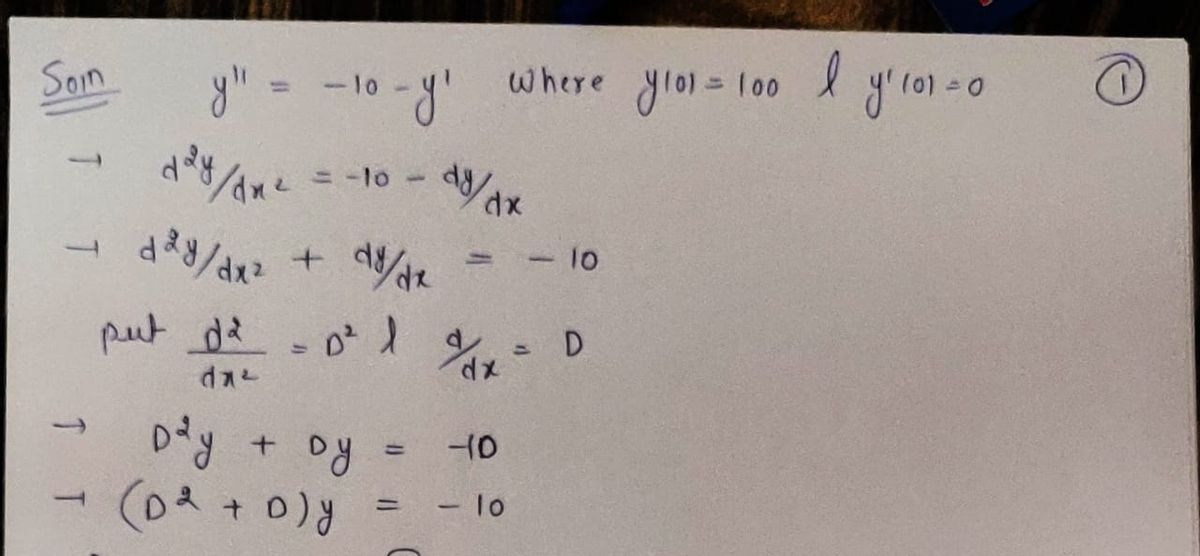 Soln y'' = -10 - y' where y(0) = 100 & y'(0) = 0 ①
→ d²y/dx² = -10 - dy/dx
→ d²y/dx² + dy/dx = -10
put d²/dx² = D² & d/dx = D
→ D²y + Dy = -10
→ (D² + D)y = -10